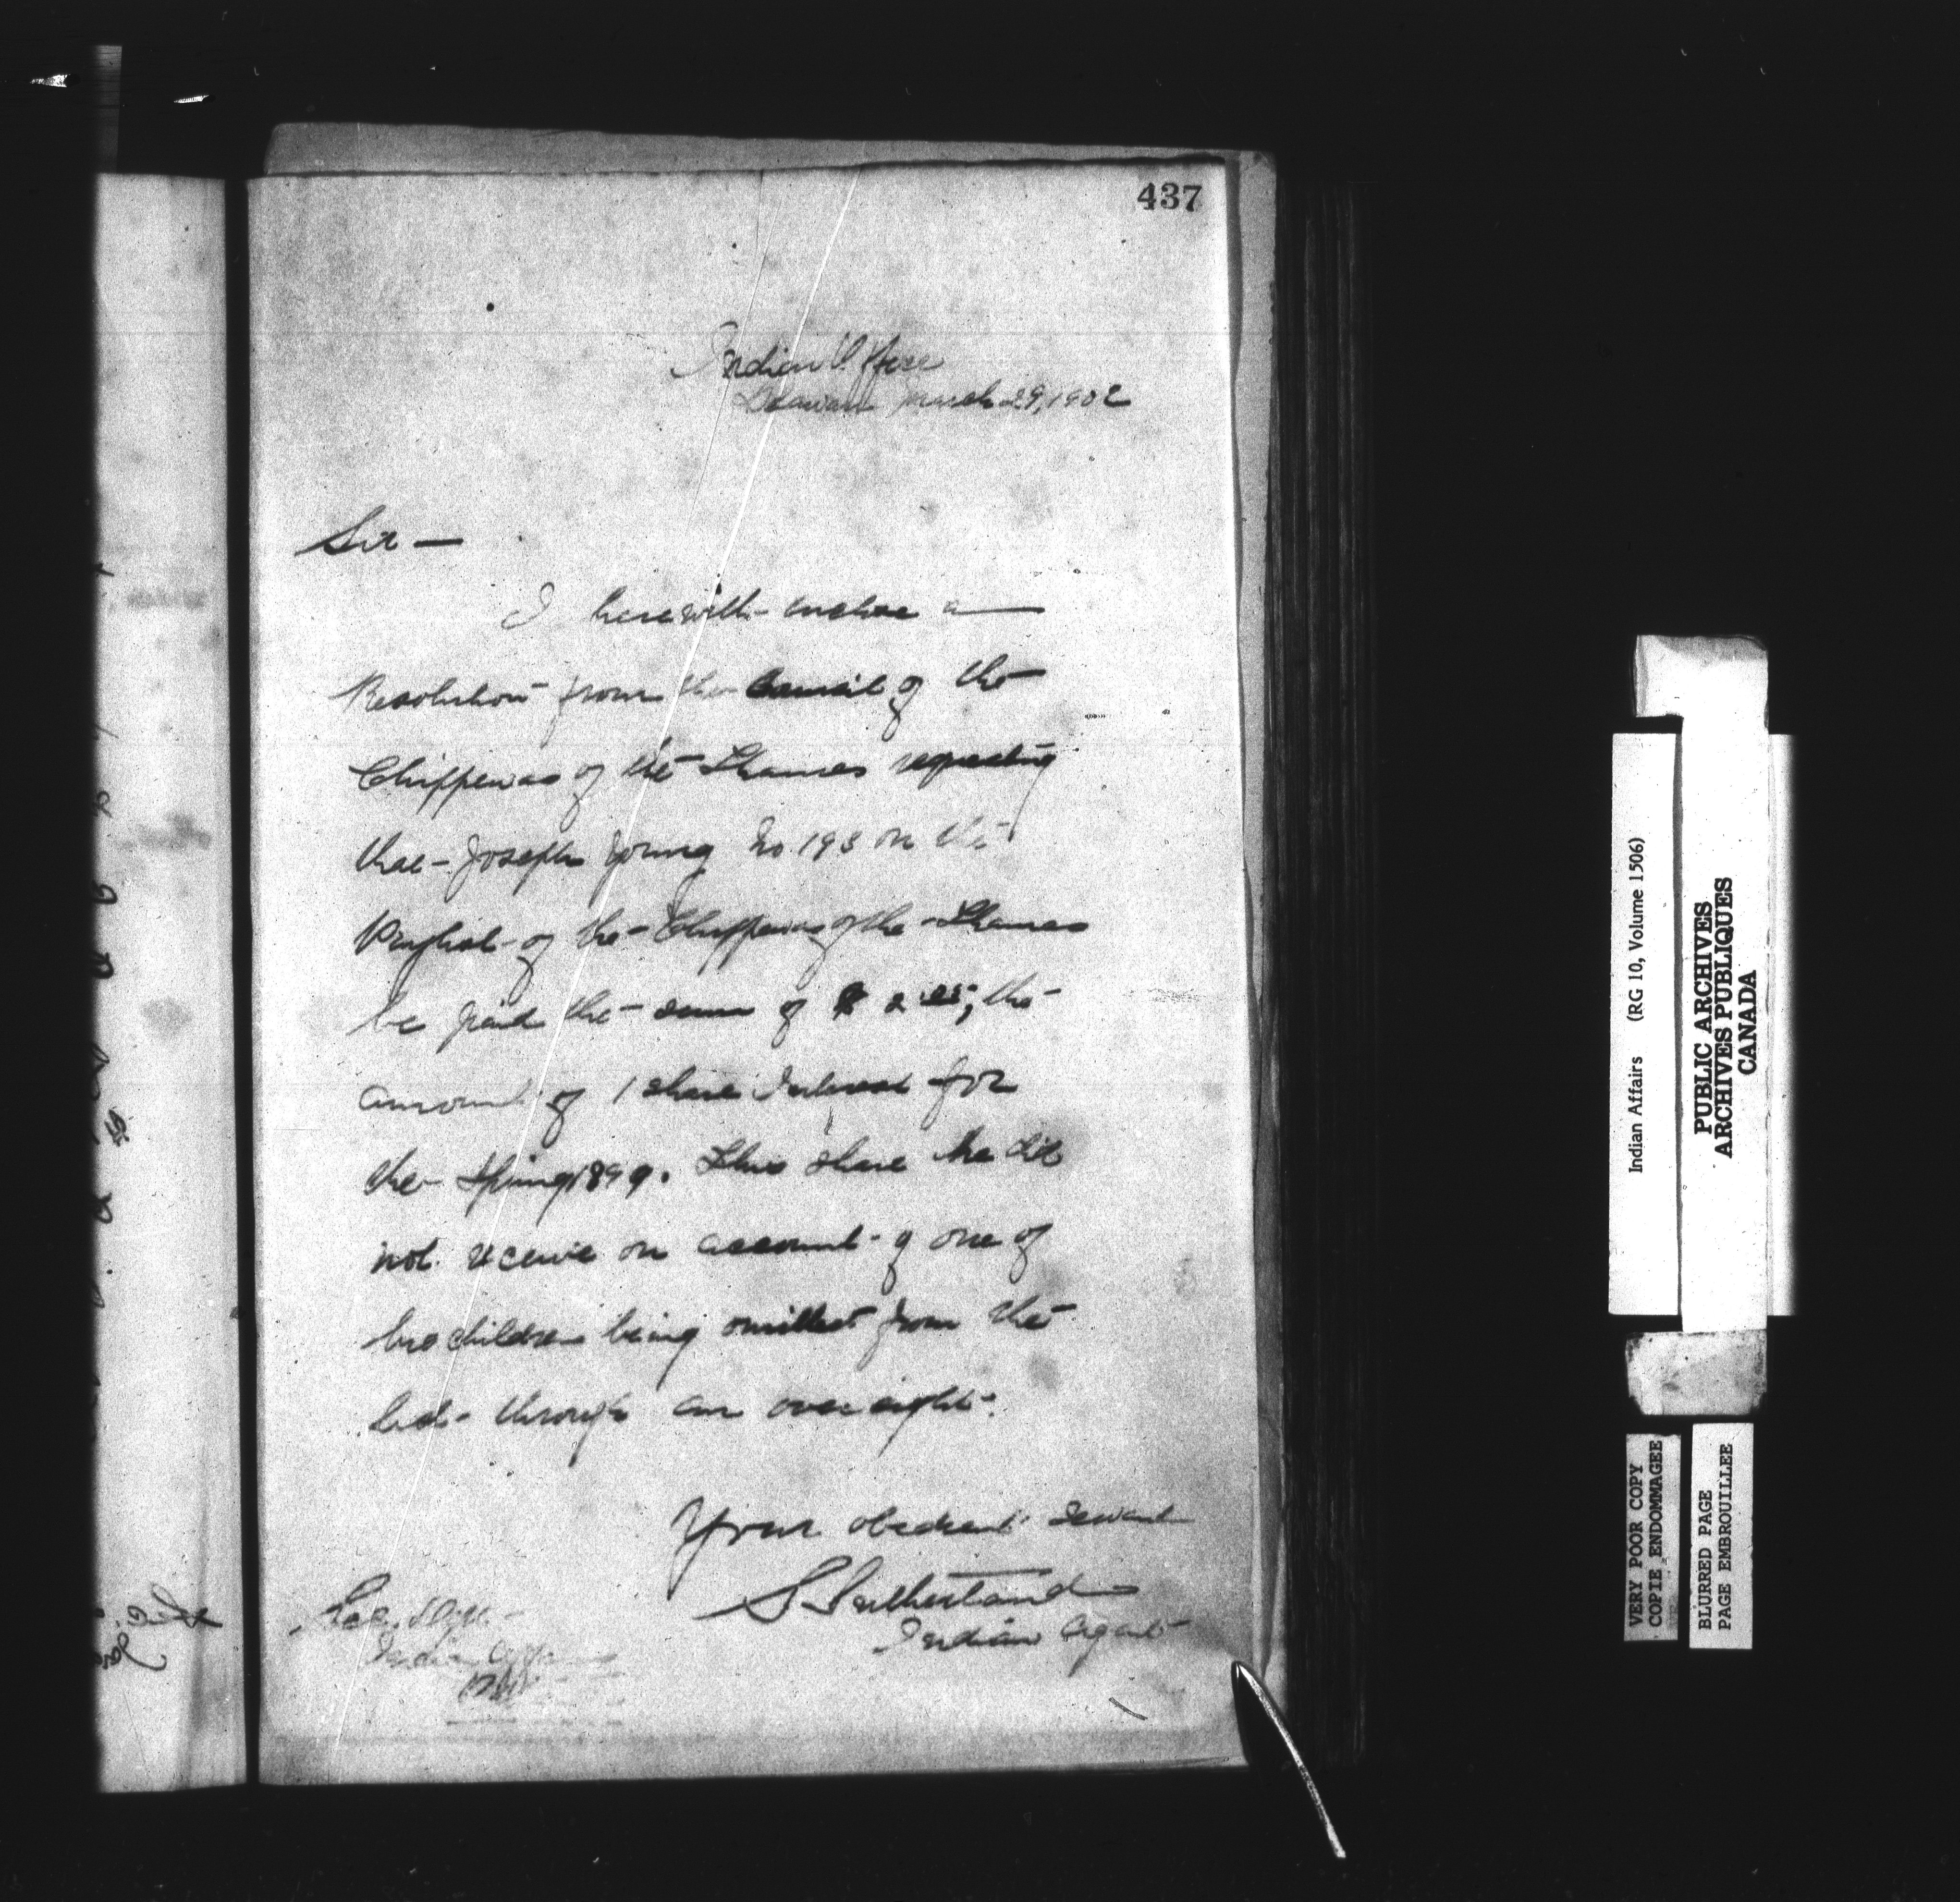 437
Indian Office
Delaware March 29, 1902
Sir —
I herewith enclose a
Resolution from the Council of the
Chippewas of the Thames requesting
that Joseph Young No 193 on the
Paylist of the Chippewas of the Thames
be paid the sum of $ 2 the
amount of 1 share Interest for
the Spring 1899. This share he did
not receive on account of one of
his children being omitted from the
list through an oversight.
Your obedient servant
S Sutherland
Indian Agent
Indian
Indian Affairs (RG 10, Volume 1506)
PUBLIC ARCHIVES
ARCHIVES PUBLIQUES
CANADA
VERY POOR COPY
COPIE ENDOMMAGEE
BLURRED PAGE
PAGE EMBROUILLEE